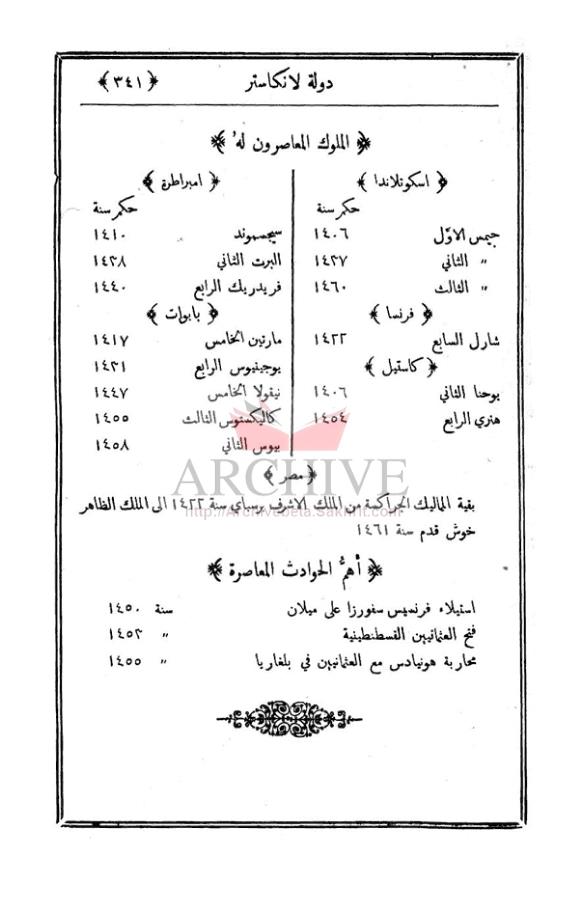 دولة لانكاستر ﴿٣٤١﴾
﴿ الملوك المعاصرون لهُ ﴾
﴿ اسكوتلاندا ﴾
حكم سنة
جيمس الاوّل ١٤٠٦
" الثاني ١٤٣٧
" الثالث ١٤٦٠
﴿ فرنسا ﴾
شارل السابع ١٤٢٢
﴿ كاستيل ﴾
يوحنا الثاني ١٤٠٦
هنري الرابع ١٤٥٤
﴿ امبراطرة ﴾
حكم سنة
سيجسموند ١٤١٠
البرت الثاني ١٤٣٨
فريدريك الرابع ١٤٤٠
﴿ بابوات ﴾
مارتين الخامس ١٤١٧
يوجينيوس الرابع ١٤٣١
نيقولا الخامس ١٤٤٧
كاليكستوس الثالث ١٤٥٥
بيوس الثاني ١٤٥٨
﴿ مصر ﴾
ARCHIVE
بقية المماليك الجراكسة من الملك الاشرف برسباي سنة ١٤٢٢ الى الملك الظاهر
http://Archivebeta.Sakhrit.com
خوش قدم سنة ١٤٦١
﴿ أهمُّ الحوادث المعاصرة ﴾
استيلاء فرنسيس سفورزا على ميلان سنة ١٤٥٠
فتح العثمانيين القسطنطينية " ١٤٥٣
محاربة هونيادس مع العثمانيين في بلغاريا " ١٤٥٥